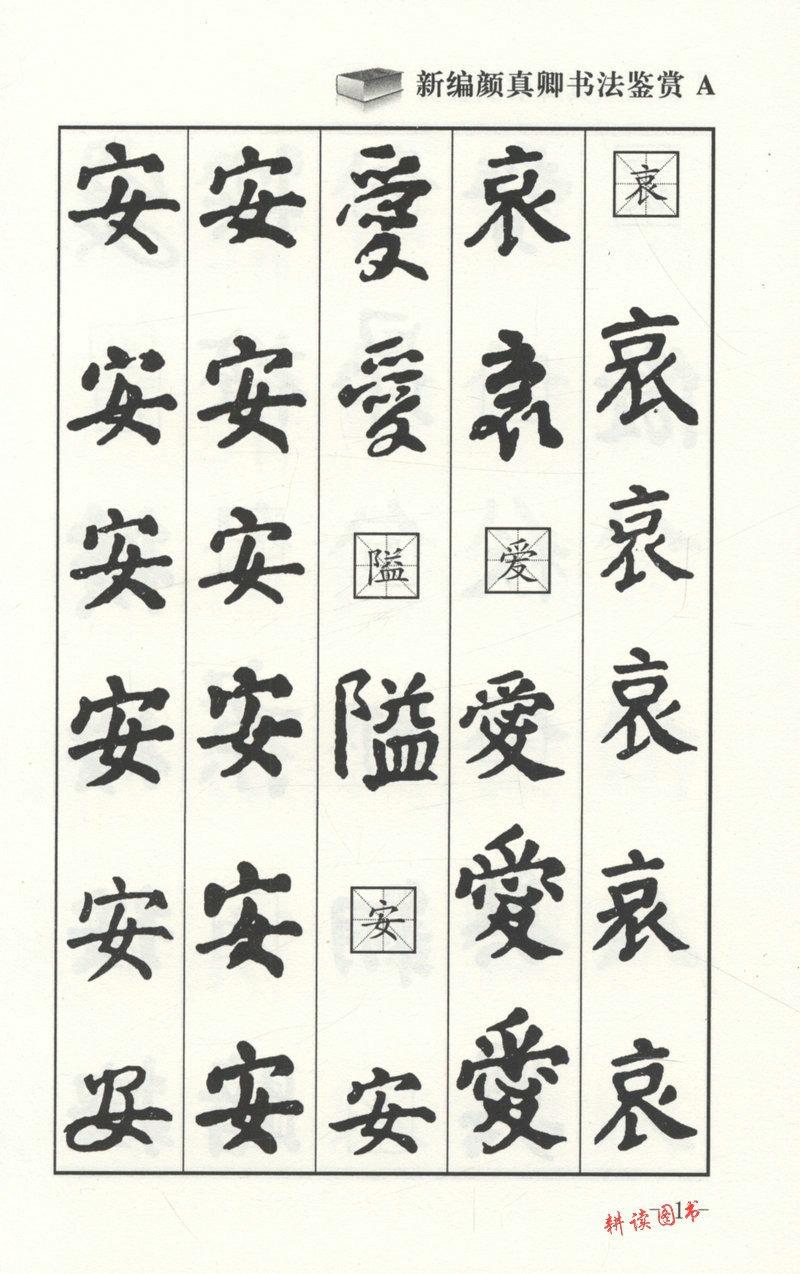 新编颜真卿书法鉴赏 A
哀
哀
哀
哀
哀
哀
哀
哀
爱
愛
愛
愛
愛
愛
隘
隘
安
安
安
安
安
安
安
安
安
安
安
安
安
安
1
耕读图书